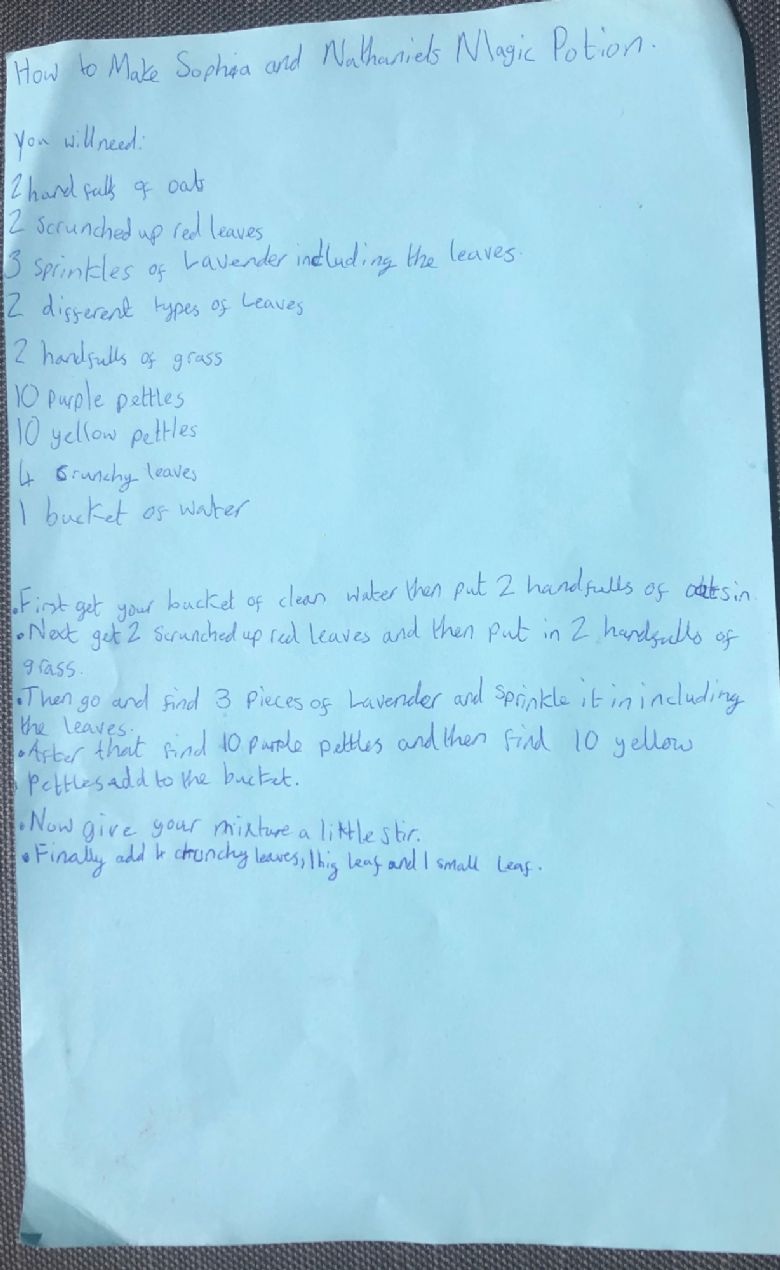 How to Make Sophia and Nathaniels Magic Potion.
You will need:
2 handfulls of oats
2 scrunched up red leaves
3 sprinkles of Lavender including the leaves.
2 different types of Leaves
2 handfulls of grass
10 purple pettles
10 yellow pettles
4 crunchy leaves
1 bucket of water
•First get your bucket of clean water then put 2 handfulls of oats in.
•Next get 2 scrunched up red leaves and then put in 2 handfulls of
grass.
•Then go and find 3 pieces of Lavender and sprinkle it in including
the leaves.
•After that find 10 purple pettles and then find 10 yellow
pettles add to the bucket.
•Now give your mixture a little stir.
•Finally add 4 crunchy leaves, 1 big leaf and 1 small leaf.